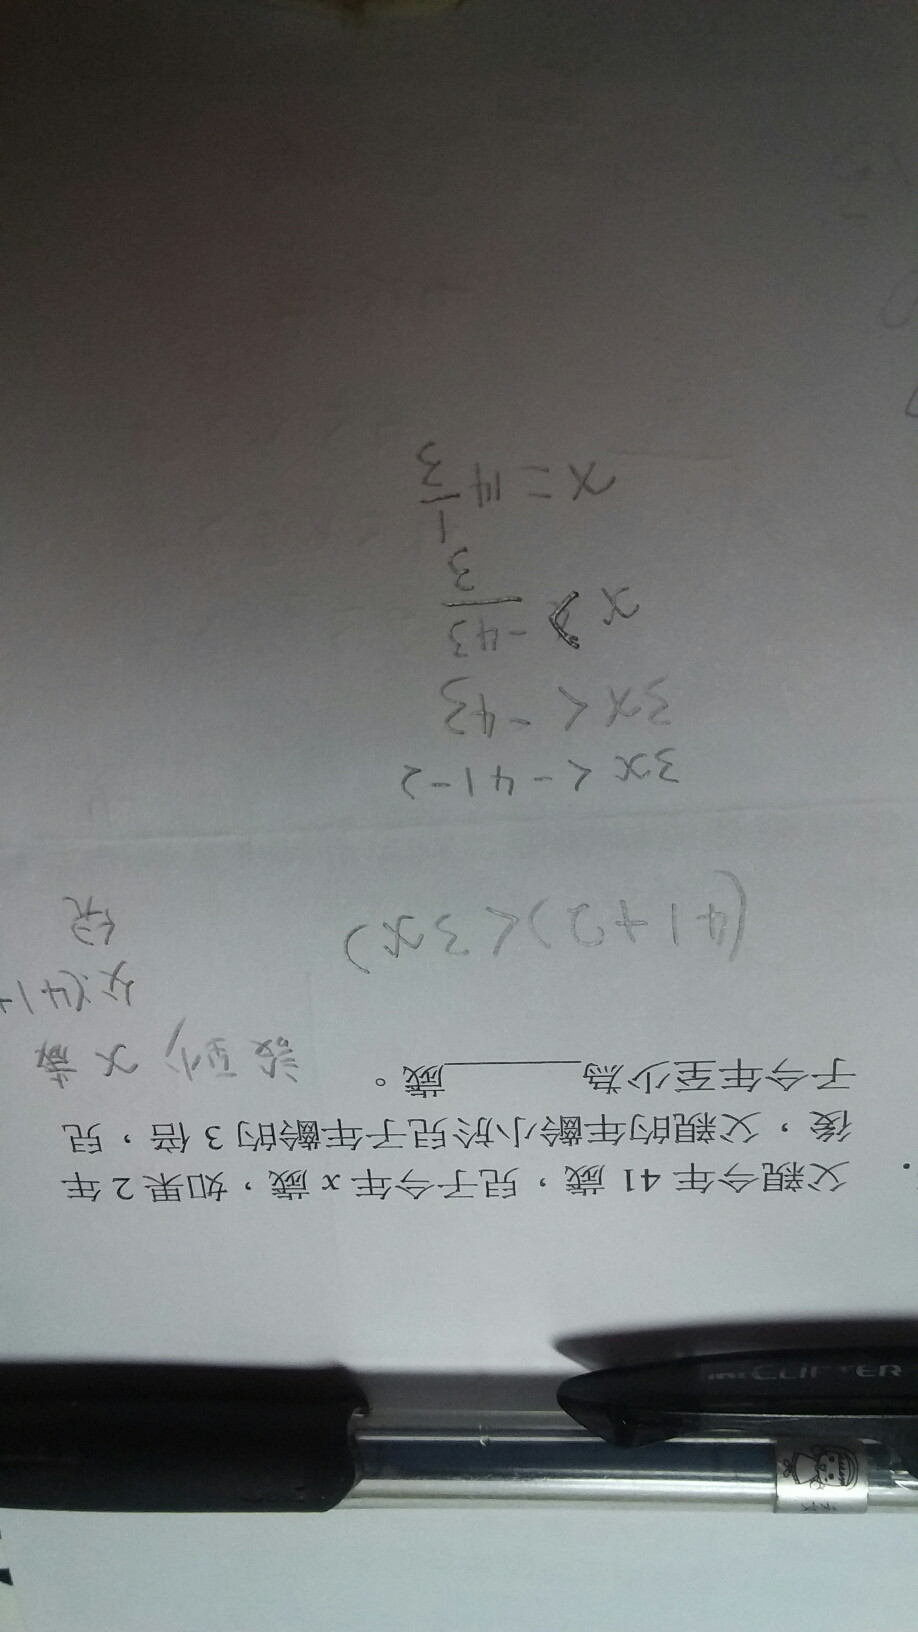 父親今年 41 歲，兒子今年 x 歲，如果 2 年
後，父親的年齡小於兒子年齡的 3 倍，兒
子今年至少為______歲。
設至少 x 歲
父(41+
兒
(41+2)<3x)
3x<-41-2
3x<-43
x>-43/3
x=14 1/3
CLIFTER